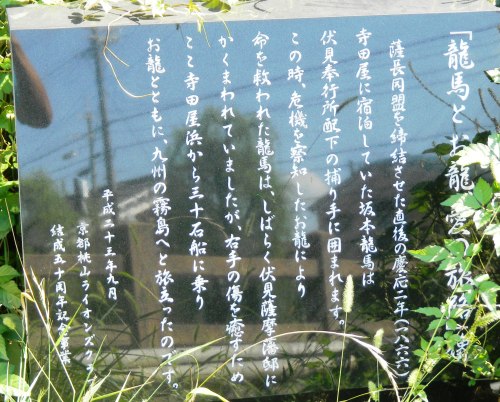 「龍馬とお龍、愛の旅路」像
薩長同盟を締結させた直後の慶応二年(一八六六)
寺田屋に宿泊していた坂本龍馬は
伏見奉行所配下の捕り手に囲まれます。
この時、危機を察知したお龍により
命を救われた龍馬は、しばらく伏見薩摩藩邸に
かくまわれていましたが、右手の傷を癒すため
ここ寺田屋浜から三十石船に乗り
お龍とともに、九州の霧島へと旅立ったのです。
平成二十三年九月
京都桃山ライオンズクラ
結成五十周年記念事業